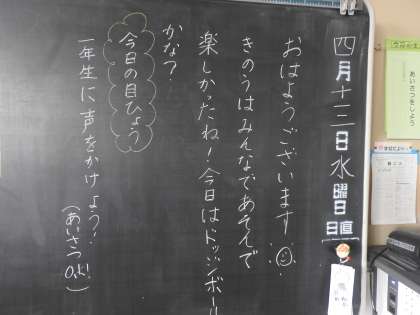 四月十三日水曜日
日直
おはようございます
きのうはみんなであそんで
楽しかったね！今日はドッジボール
かな？
今日の目ひょう
一年生に声をかけよう！
（あいさつOK!）
あいさつをしよう